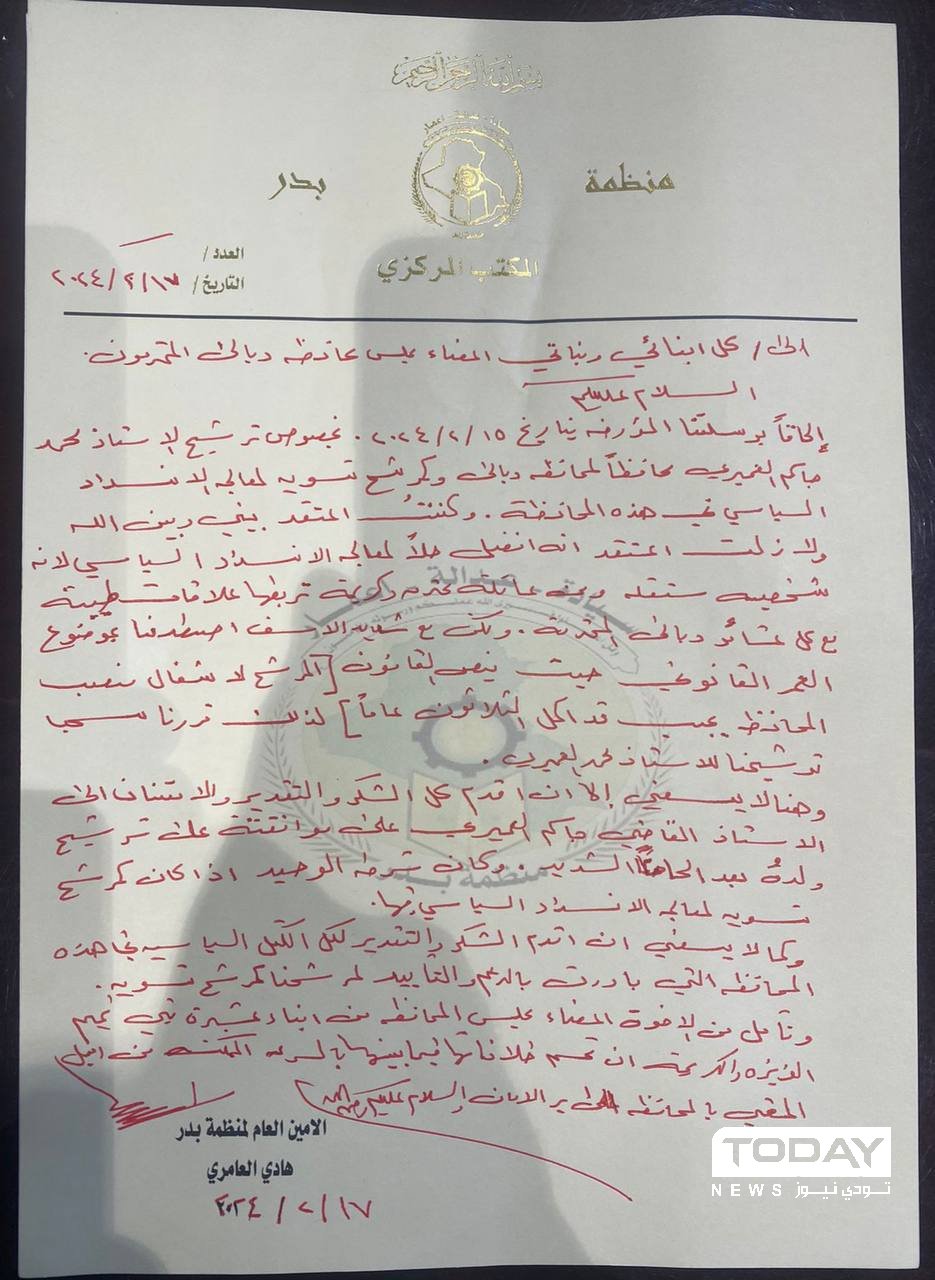 بسم الله الرحمن الرحيم
منظمة بدر
المكتب المركزي
العدد /
التاريخ / ٢٠٢٤/٢/١٧
الى / كل ابنائي وبناتي اعضاء مجلس محافظة ديالى المحترمون.
السلام عليكم
إلحاقاً برسلتنا المؤرخه بتاريخ ٢٠٢٤/٢/١٥. بخصوص ترشيح الاستاذ محمد
جاكم العميري محافظاً لمحافظه ديالى وكمرشح تسويه لمعالجه الانسداد
السياسي في هذه المحافظة. وكنتُ المعتقد بيني وبين الله
ولا زلت اعتقد انه افضل حلاً لمعالجه الانسداد السياسي لانه
شخصيه مستقله ومن عائلة محترمه وكريمة تربطها علاقات طيبة
مع كل عشائر ديالى المحترمة. ولكن مع شديد الاسف اصطدمنا بموضوع
العمر القانوني حيث ينص القانون [المرشح لاشغال منصب
المحافظ يجب قد اكمل الثلاثون عاماً] لذلك قررنا سحب
ترشيحنا للاستاذ محمد العميري.
وهنا لا يسعني إلا ان اقدم كل الشكر والتقدير والامتنان الى
الاستاذ القاضي جاكم العميري على موافقته على ترشيح
ولدهُ بعد الحاحنا الشديد. وكان شرطه الوحيد اذا كان كمرشح
تسويه لمعالجه الانسداد السياسي
وكما لا يسعني ان اقدم الشكر والتقدير لكل الكتل السياسيه في هذه
المحافظه التي بادرت بالدعم والتأييد لمرشحنا كمرشح تسويه.
ونأمل من الاخوة اعضاء مجلس المحافظه من ابناء عشيرة بني تميم
العزيزه والكريمة ان تحسم خلافاتها فيما بينها بالسرعه الممكنه من اجل
المضي بالمحافظه الى بر الامان والسلام عليكم ورحمة الله
الامين العام لمنظمة بدر
هادي العامري
٢٠٢٤/٢/١٧
منظمة بدر
TODAY
NEWS تودي نيوز